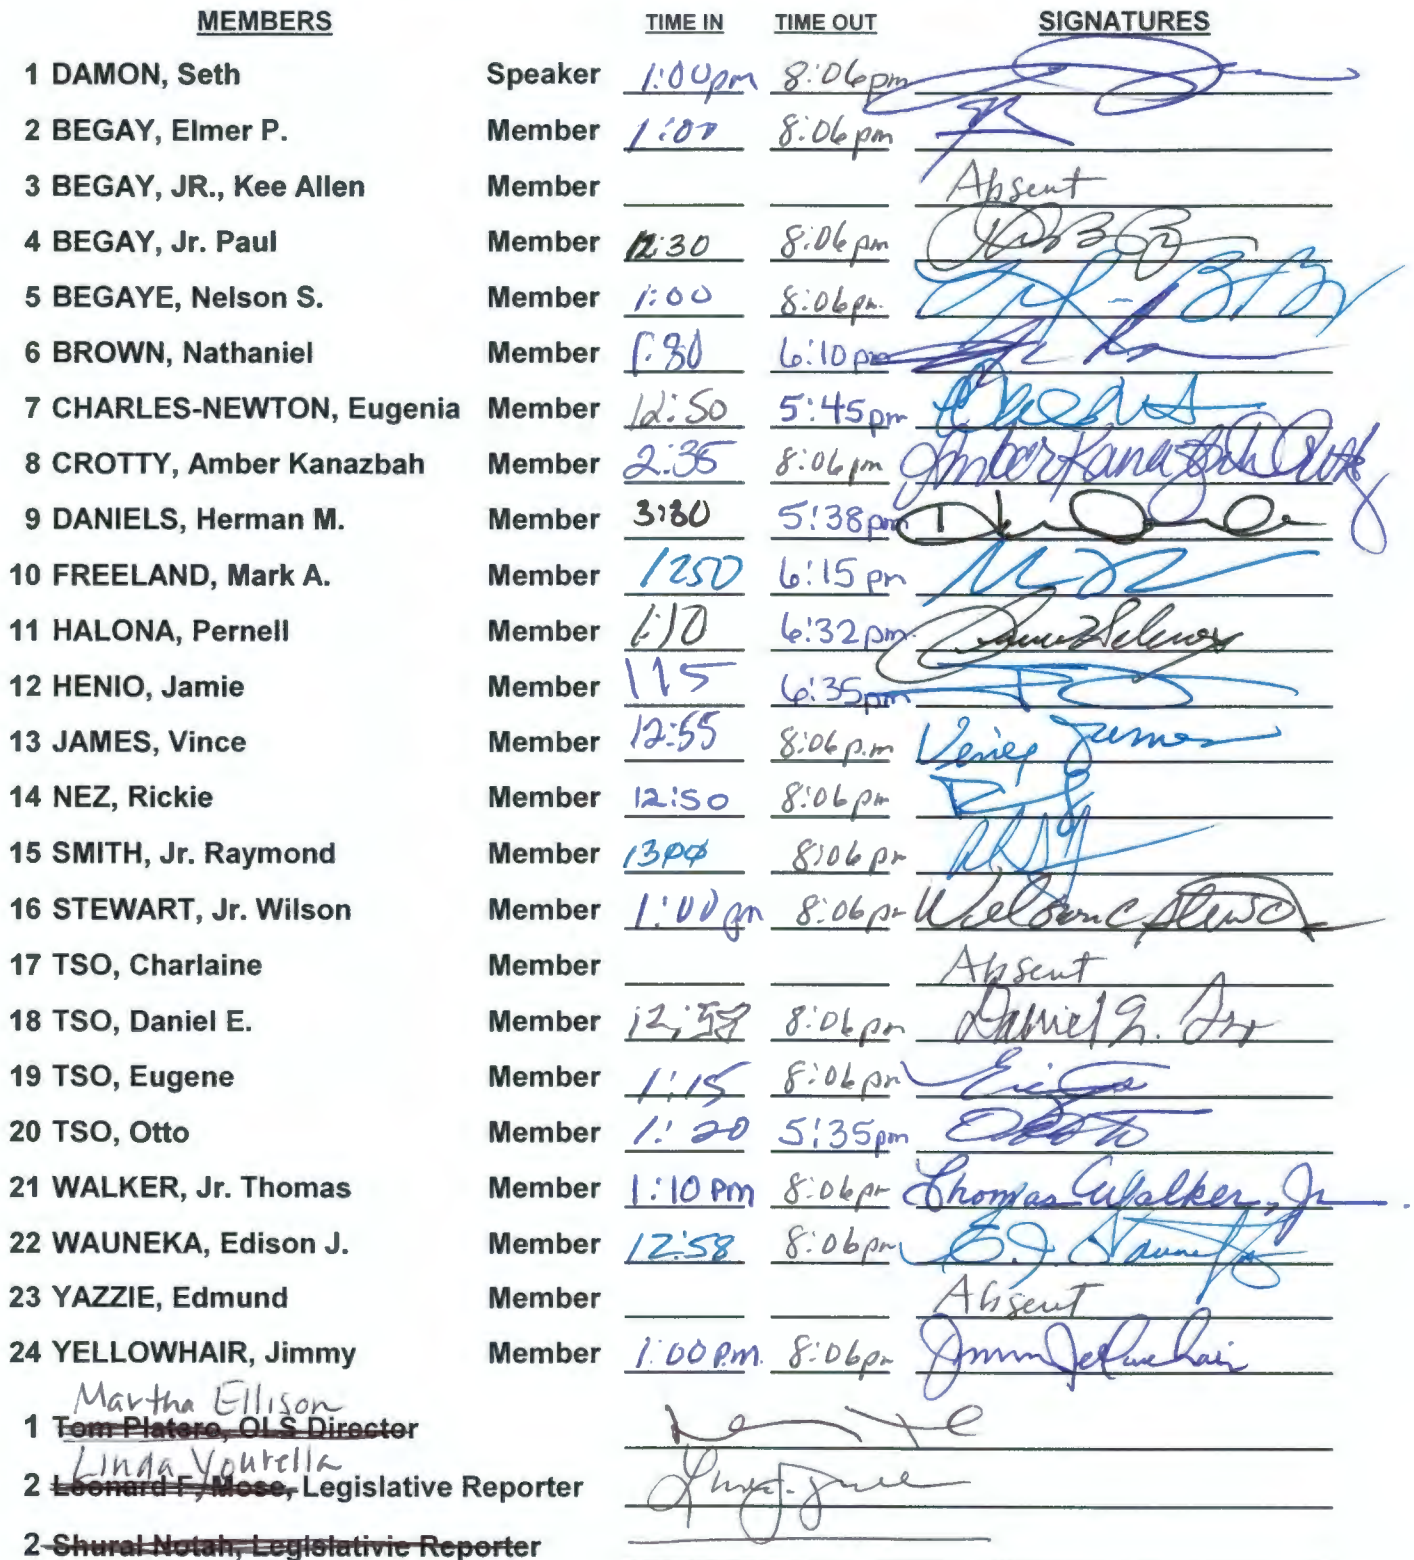 MEMBERS TIME IN TIME OUT SIGNATURES
1 DAMON, Seth Speaker 1:00pm 8:06pm
2 BEGAY, Elmer P. Member 1:00 8:06pm
3 BEGAY, JR., Kee Allen Member Absent
4 BEGAY, Jr. Paul Member 12:30 8:06pm
5 BEGAYE, Nelson S. Member 1:00 8:06pm.
6 BROWN, Nathaniel Member 1:30 6:10pm
7 CHARLES-NEWTON, Eugenia Member 12:50 5:45pm
8 CROTTY, Amber Kanazbah Member 2:35 8:06pm Amber Kanazbah Crotty
9 DANIELS, Herman M. Member 3:30 5:38pm
10 FREELAND, Mark A. Member 1250 6:15pm
11 HALONA, Pernell Member 1:10 6:32pm.
12 HENIO, Jamie Member 115 6:35pm
13 JAMES, Vince Member 12:55 8:06p.m Vince James
14 NEZ, Rickie Member 12:50 8:06pm
15 SMITH, Jr. Raymond Member 1300 8:06pm
16 STEWART, Jr. Wilson Member 1:00pm 8:06pm Wilson C Stewart
17 TSO, Charlaine Member Absent
18 TSO, Daniel E. Member 8:06pm Daniel E. Tso
19 TSO, Eugene Member 1:15 8:06pm
20 TSO, Otto Member 1:20 5:35pm
21 WALKER, Jr. Thomas Member 1:10 pm 8:06pm Thomas Walker, Jr.
22 WAUNEKA, Edison J. Member 12:58 8:06pm E.J. Wauneka
23 YAZZIE, Edmund Member Absent
24 YELLOWHAIR, Jimmy Member 1:00 p.m. 8:06pm Jimmy Yellowhair
Martha Ellison
1 Tom Platero, OLS Director
Linda Youvella
2 Leonard F, Mose, Legislative Reporter
2 Shural Notah, Legislativie Reporter